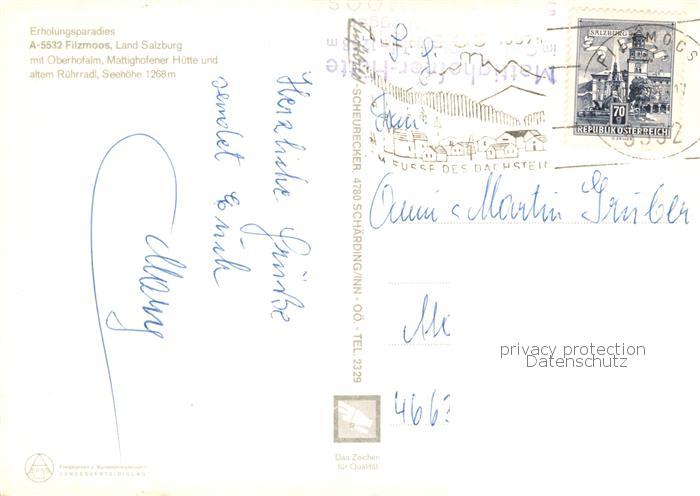 Erholungsparadies
A-5532 Filzmoos, Land Salzburg
mit Oberhofalm, Mattighofener Hütte und
altem Rührradl, Seehöhe 1268 m
Herzliche Grüße
sendet Euch
SCHEURECKER, 4780 SCHÄRDING/INN - OÖ. - TEL. 2329
Mattighofener-Hütte
SALZBURG
70
REPUBLIK ÖSTERREICH
FILZMOOS
5532
AM FUSSE DES DACHSTEIN
Fam
Anni u Martin Gruber
466
privacy protection
Datenschutz
Das Zeichen
für Qualität
LANDESVERTEIDIGUNG